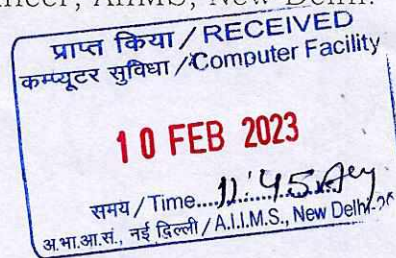 ncer, AIIMS, New Delhi.
प्राप्त किया / RECEIVED
कम्प्यूटर सुविधा / Computer Facility
10 FEB 2023
समय / Time....11:45
अ.भा.आ.सं., नई दिल्ली / A.I.I.M.S., New Delhi-